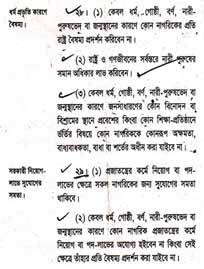 ধর্ম প্রভৃতি কারণে
বৈষম্য।
২৮। (১) কেবল ধর্ম, গোষ্ঠী, বর্ণ, নারী-
পুরুষভেদ বা জন্মস্থানের কারণে কোন নাগরিকের প্রতি
রাষ্ট্র বৈষম্য প্রদর্শন করিবেন না।
(২) রাষ্ট্র ও গণজীবনের সর্বস্তরে নারী-পুরুষের
সমান অধিকার লাভ করিবেন।
(৩) কেবল ধর্ম, গোষ্ঠী, বর্ণ, নারী-পুরুষভেদ বা
জন্মস্থানের কারণে জনসাধারণের কোন বিনোদন বা
বিশ্রামের স্থানে প্রবেশের কিংবা কোন শিক্ষা-প্রতিষ্ঠানে
ভর্তির বিষয়ে কোন নাগরিককে কোনরূপ অক্ষমতা,
বাধ্যবাধকতা, বাধা বা শর্তের অধীন করা যাইবে না।
সরকারী নিয়োগ-
লাভে সুযোগের
সমতা।
২৯। (১) প্রজাতন্ত্রের কর্মে নিয়োগ বা পদ-
লাভের ক্ষেত্রে সকল নাগরিকের জন্য সুযোগের সমতা
থাকিবে।
(২) কেবল ধর্ম, গোষ্ঠী, বর্ণ, নারী-পুরুষভেদ বা
জন্মস্থানের কারণে কোন নাগরিক প্রজাতন্ত্রের কর্মে
নিয়োগ বা পদ-লাভের অযোগ্য হইবেন না কিংবা সেই
ক্ষেত্রে তাঁহার প্রতি বৈষম্য প্রদর্শন করা যাইবে না।